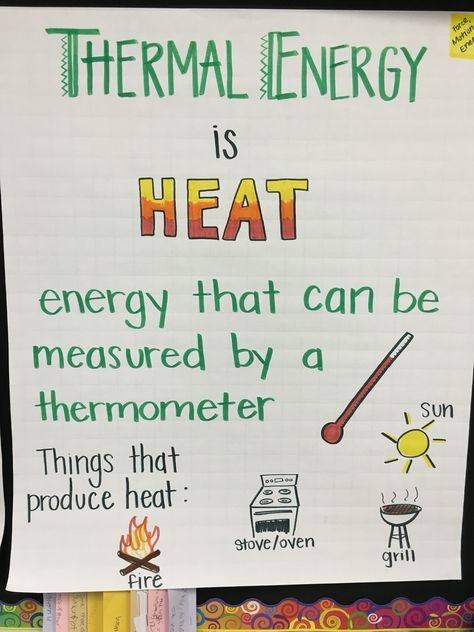 THERMAL ENERGY
is
HEAT
energy that can be
measured by a
thermometer
sun
Things that
produce heat:
stove/oven
grill
fire
Force,
Motion